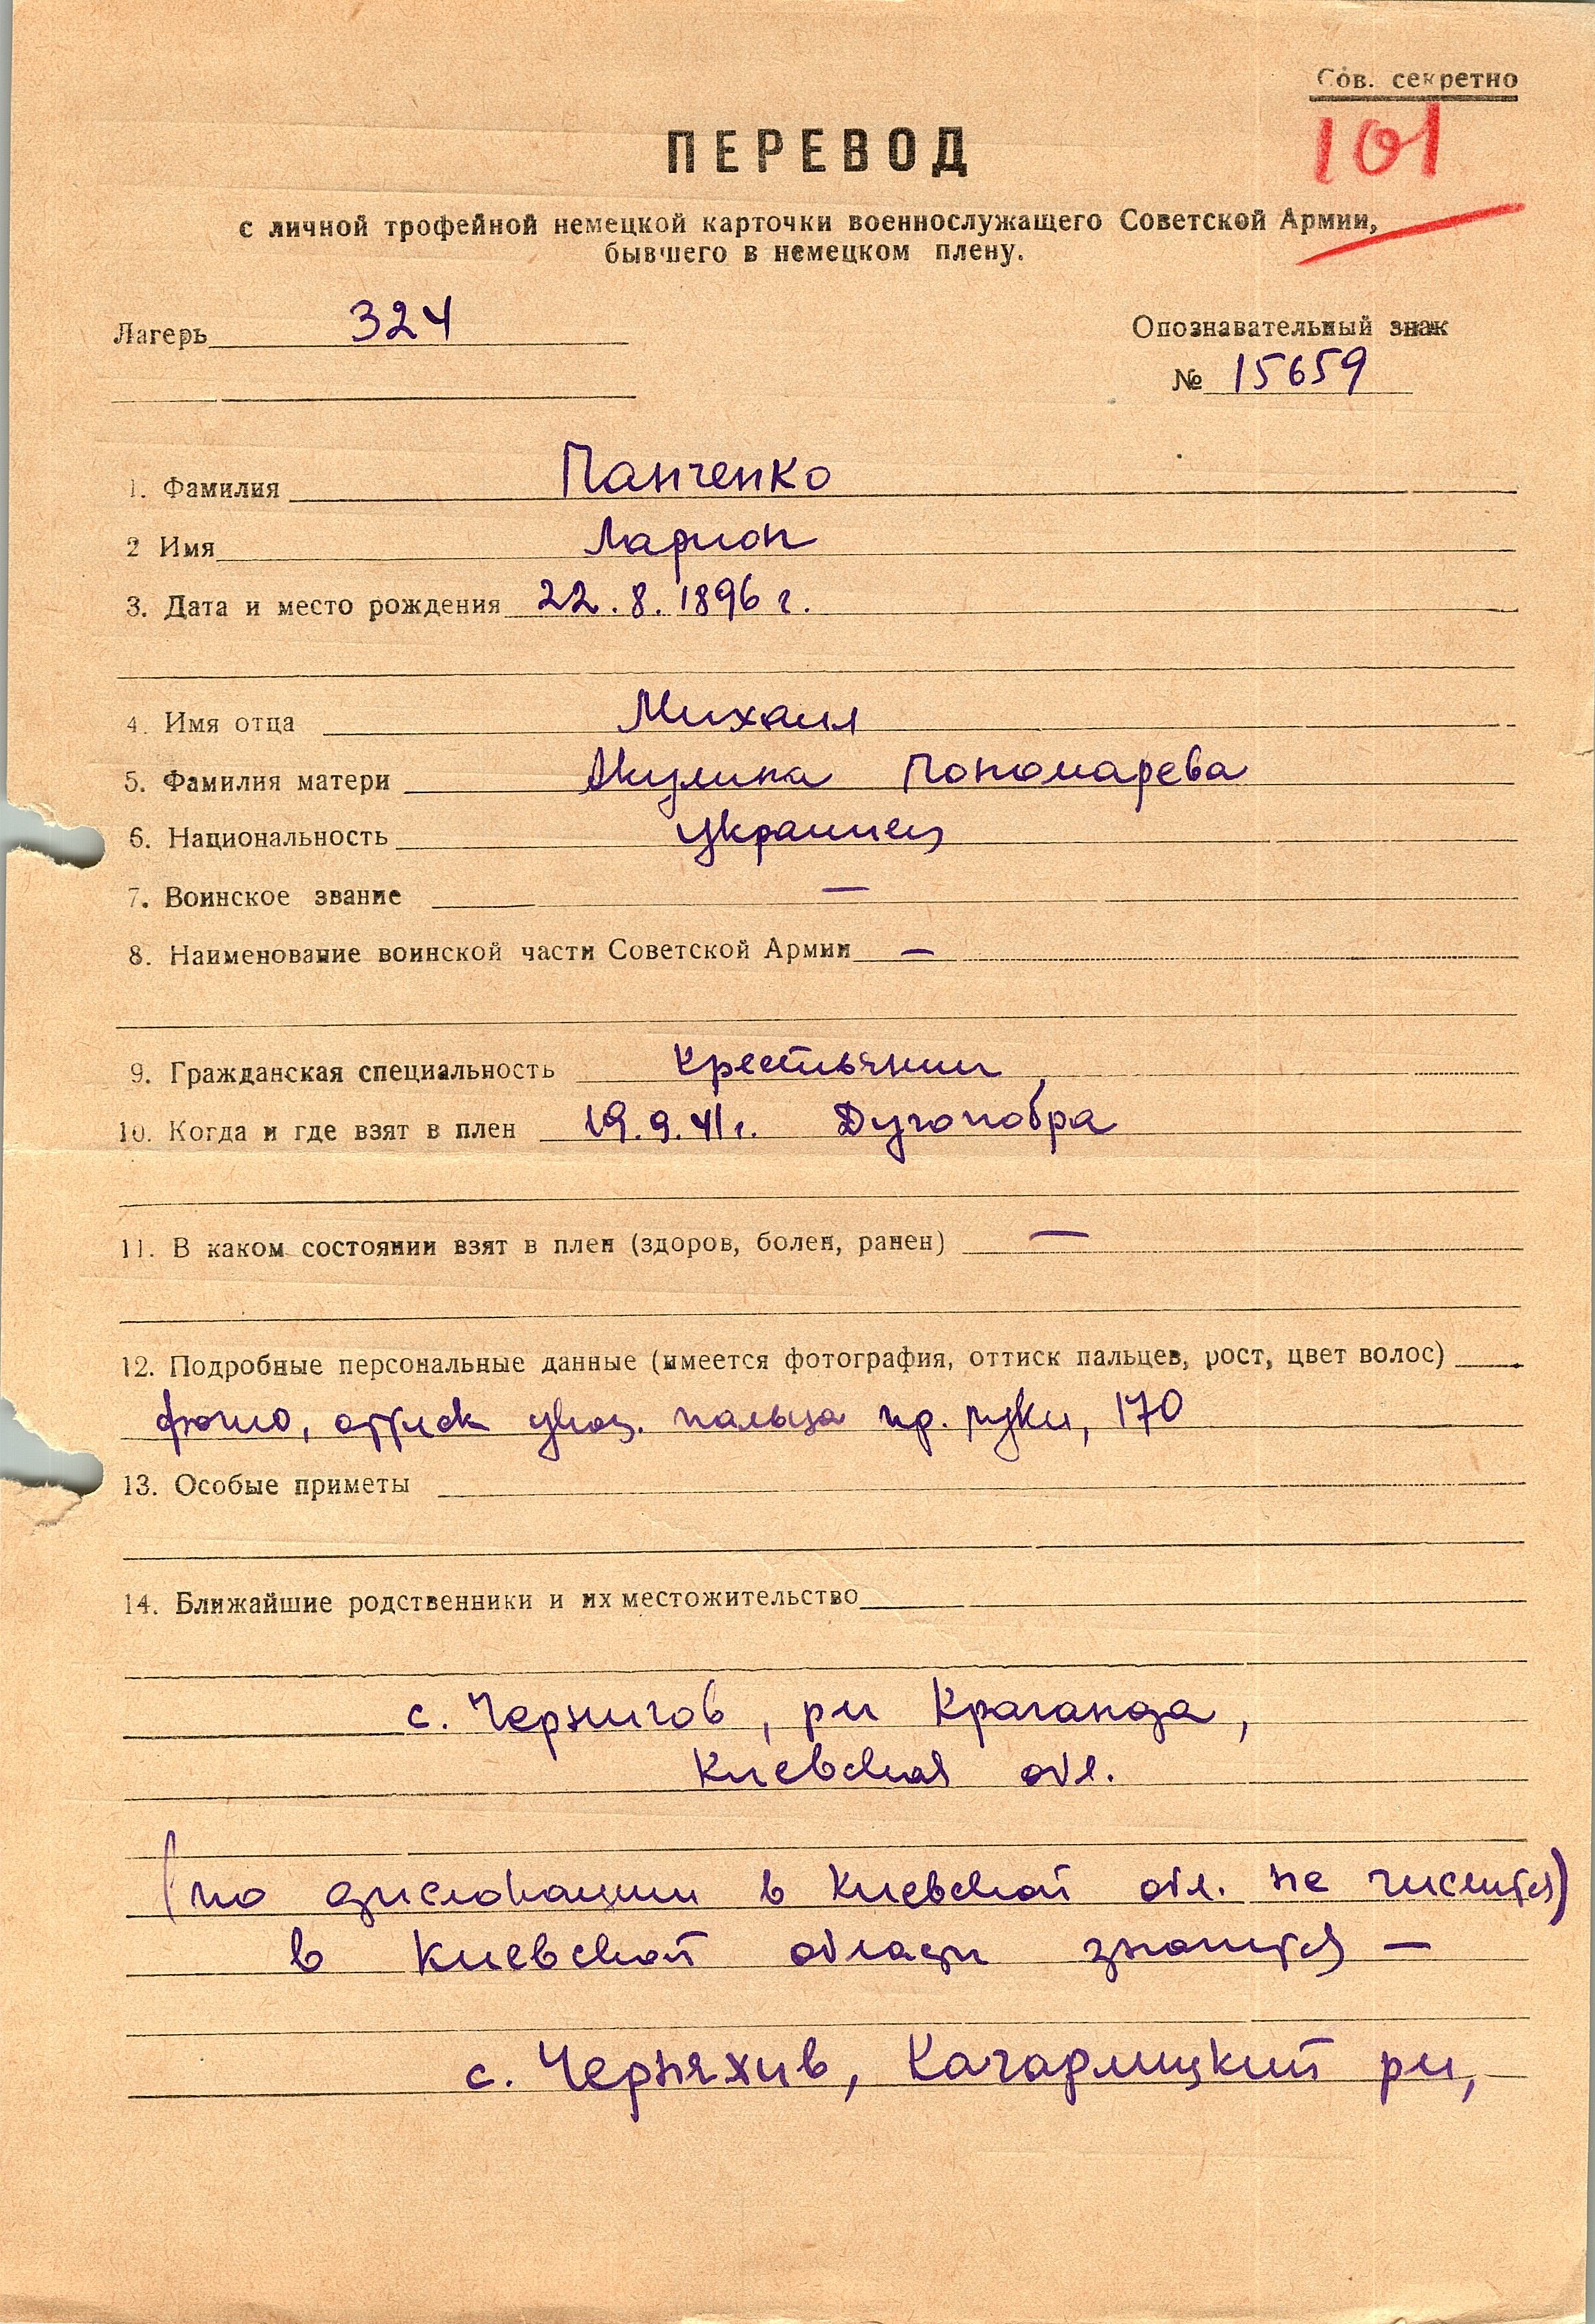 Сов. секретно
101
ПЕРЕВОД
с личной трофейной немецкой карточки военнослужащего Советской Армии,
бывшего в немецком плену.
Лагерь 324
Опознавательный знак
№ 15659
1. Фамилия Панченко
2 Имя Ларион
3. Дата и место рождения 22.8.1896 г.
4. Имя отца Михаил
5. Фамилия матери Акулина Пономарева
6. Национальность украинец
7. Воинское звание —
8. Наименование воинской части Советской Армии —
9. Гражданская специальность крестьянин
10. Когда и где взят в плен 19.9.41г. Дугонобра
11. В каком состоянии взят в плен (здоров, болен, ранен) —
12. Подробные персональные данные (имеется фотография, оттиск пальцев, рост, цвет волос)
фото, оттиск указ. пальца пр. руки, 170
13. Особые приметы
14. Ближайшие родственники и их местожительство
с. Чернигов, р-н Краганда,
Киевская обл.
(по дислокации в Киевской обл. не числится)
в Киевской области значится —
с. Черняхив, Кагарлицкий р-н,